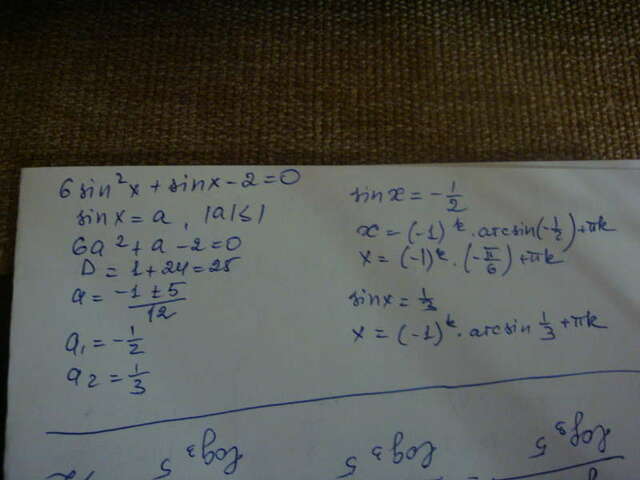 6sin²x + sinx - 2 = 0
sinx = a, |a| ≤ 1
6a² + a - 2 = 0
D = 1 + 24 = 25
a = (-1 ± 5)/12
a₁ = -1/2
a₂ = 1/3
sinx = -1/2
x = (-1)^k · arcsin(-1/2) + πk
x = (-1)^k · (-π/6) + πk
sinx = 1/3
x = (-1)^k · arcsin 1/3 + πk
log₃5
log₃5
log₃5